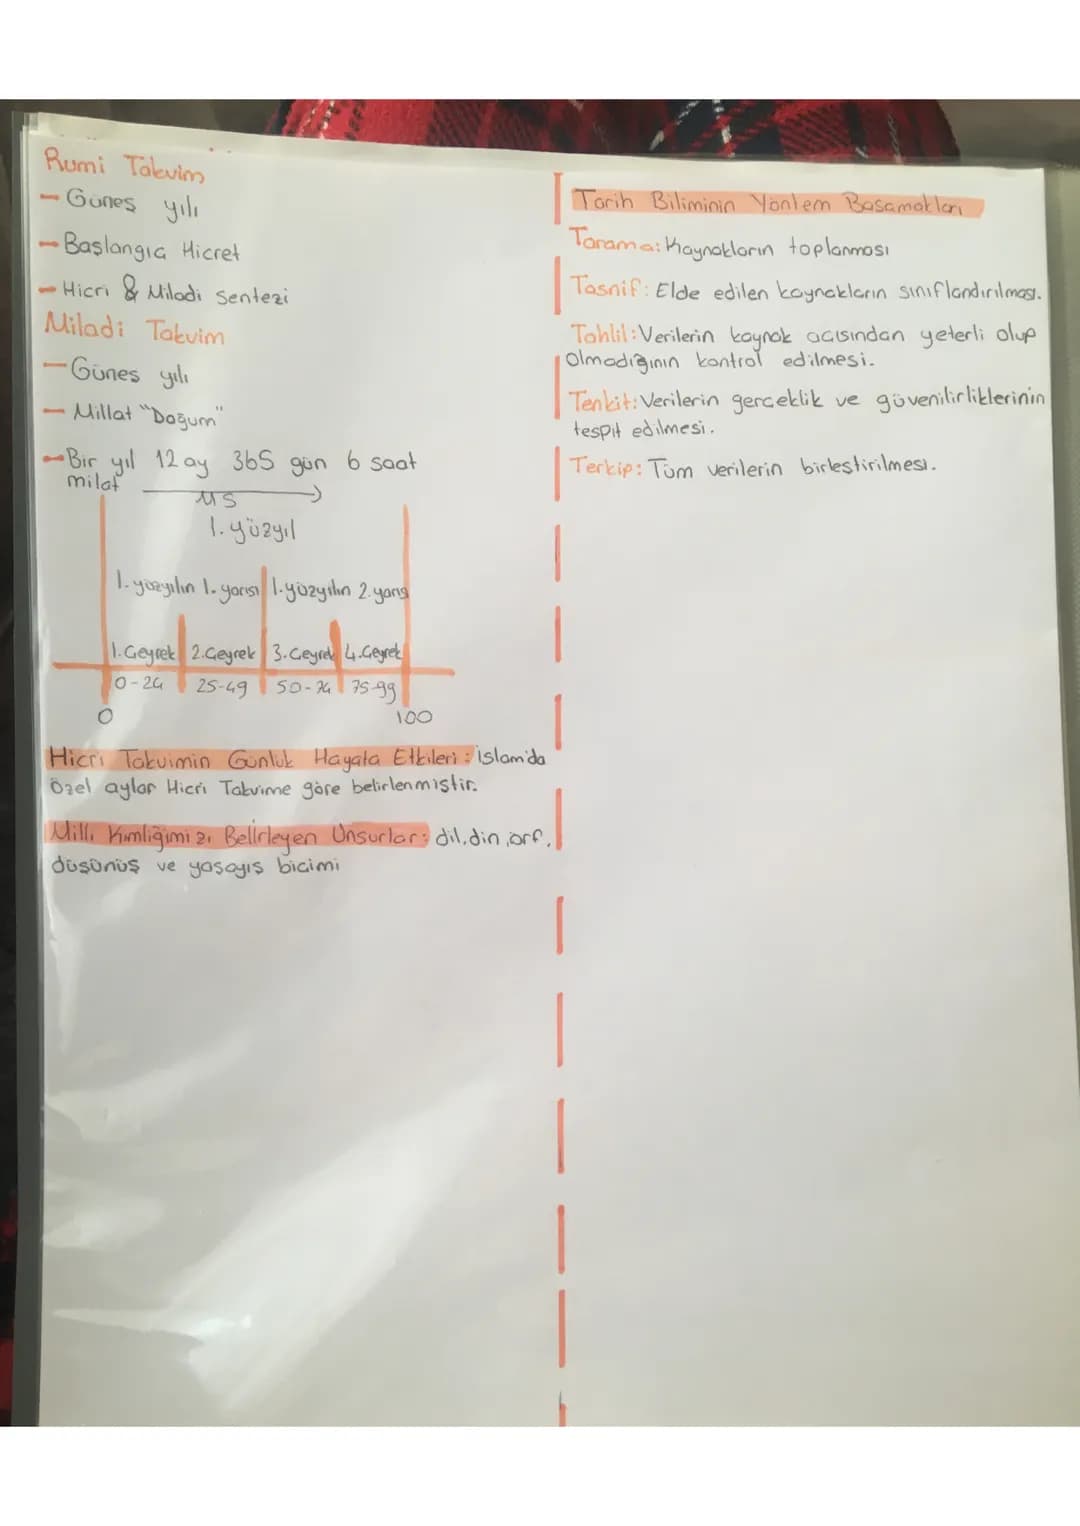 Rumi Takvim
- Güneş yılı
- Başlangıcı Hicret
- Hicri & Miladi sentezi
Miladi Takvim
- Güneş yılı
- Millat "Doğum"
- Bir yıl 12 ay 365 gün 6 saat
milat
MS
1. yüzyıl
1. yüzyılın 1. yarısı 1. yüzyılın 2. yarısı
1. Çeyrek 2. Çeyrek 3. Çeyrek 4. Çeyrek
0-24 25-49 50-74 75-99
0 100
Hicri Takvimin Günlük Hayata Etkileri: İslam'da
özel aylar Hicri Takvime göre belirlenmiştir.
Milli Kimliğimizi Belirleyen Unsurlar: dil, din, örf,
düşünüş ve yaşayış biçimi
Tarih Biliminin Yöntem Basamakları
Tarama: Kaynakların toplanması
Tasnif: Elde edilen kaynakların sınıflandırılması.
Tahlil: Verilerin kaynak açısından yeterli olup
olmadığının kontrol edilmesi.
Tenkit: Verilerin gerçeklik ve güvenilirliklerinin
tespit edilmesi.
Terkip: Tüm verilerin birleştirilmesi.